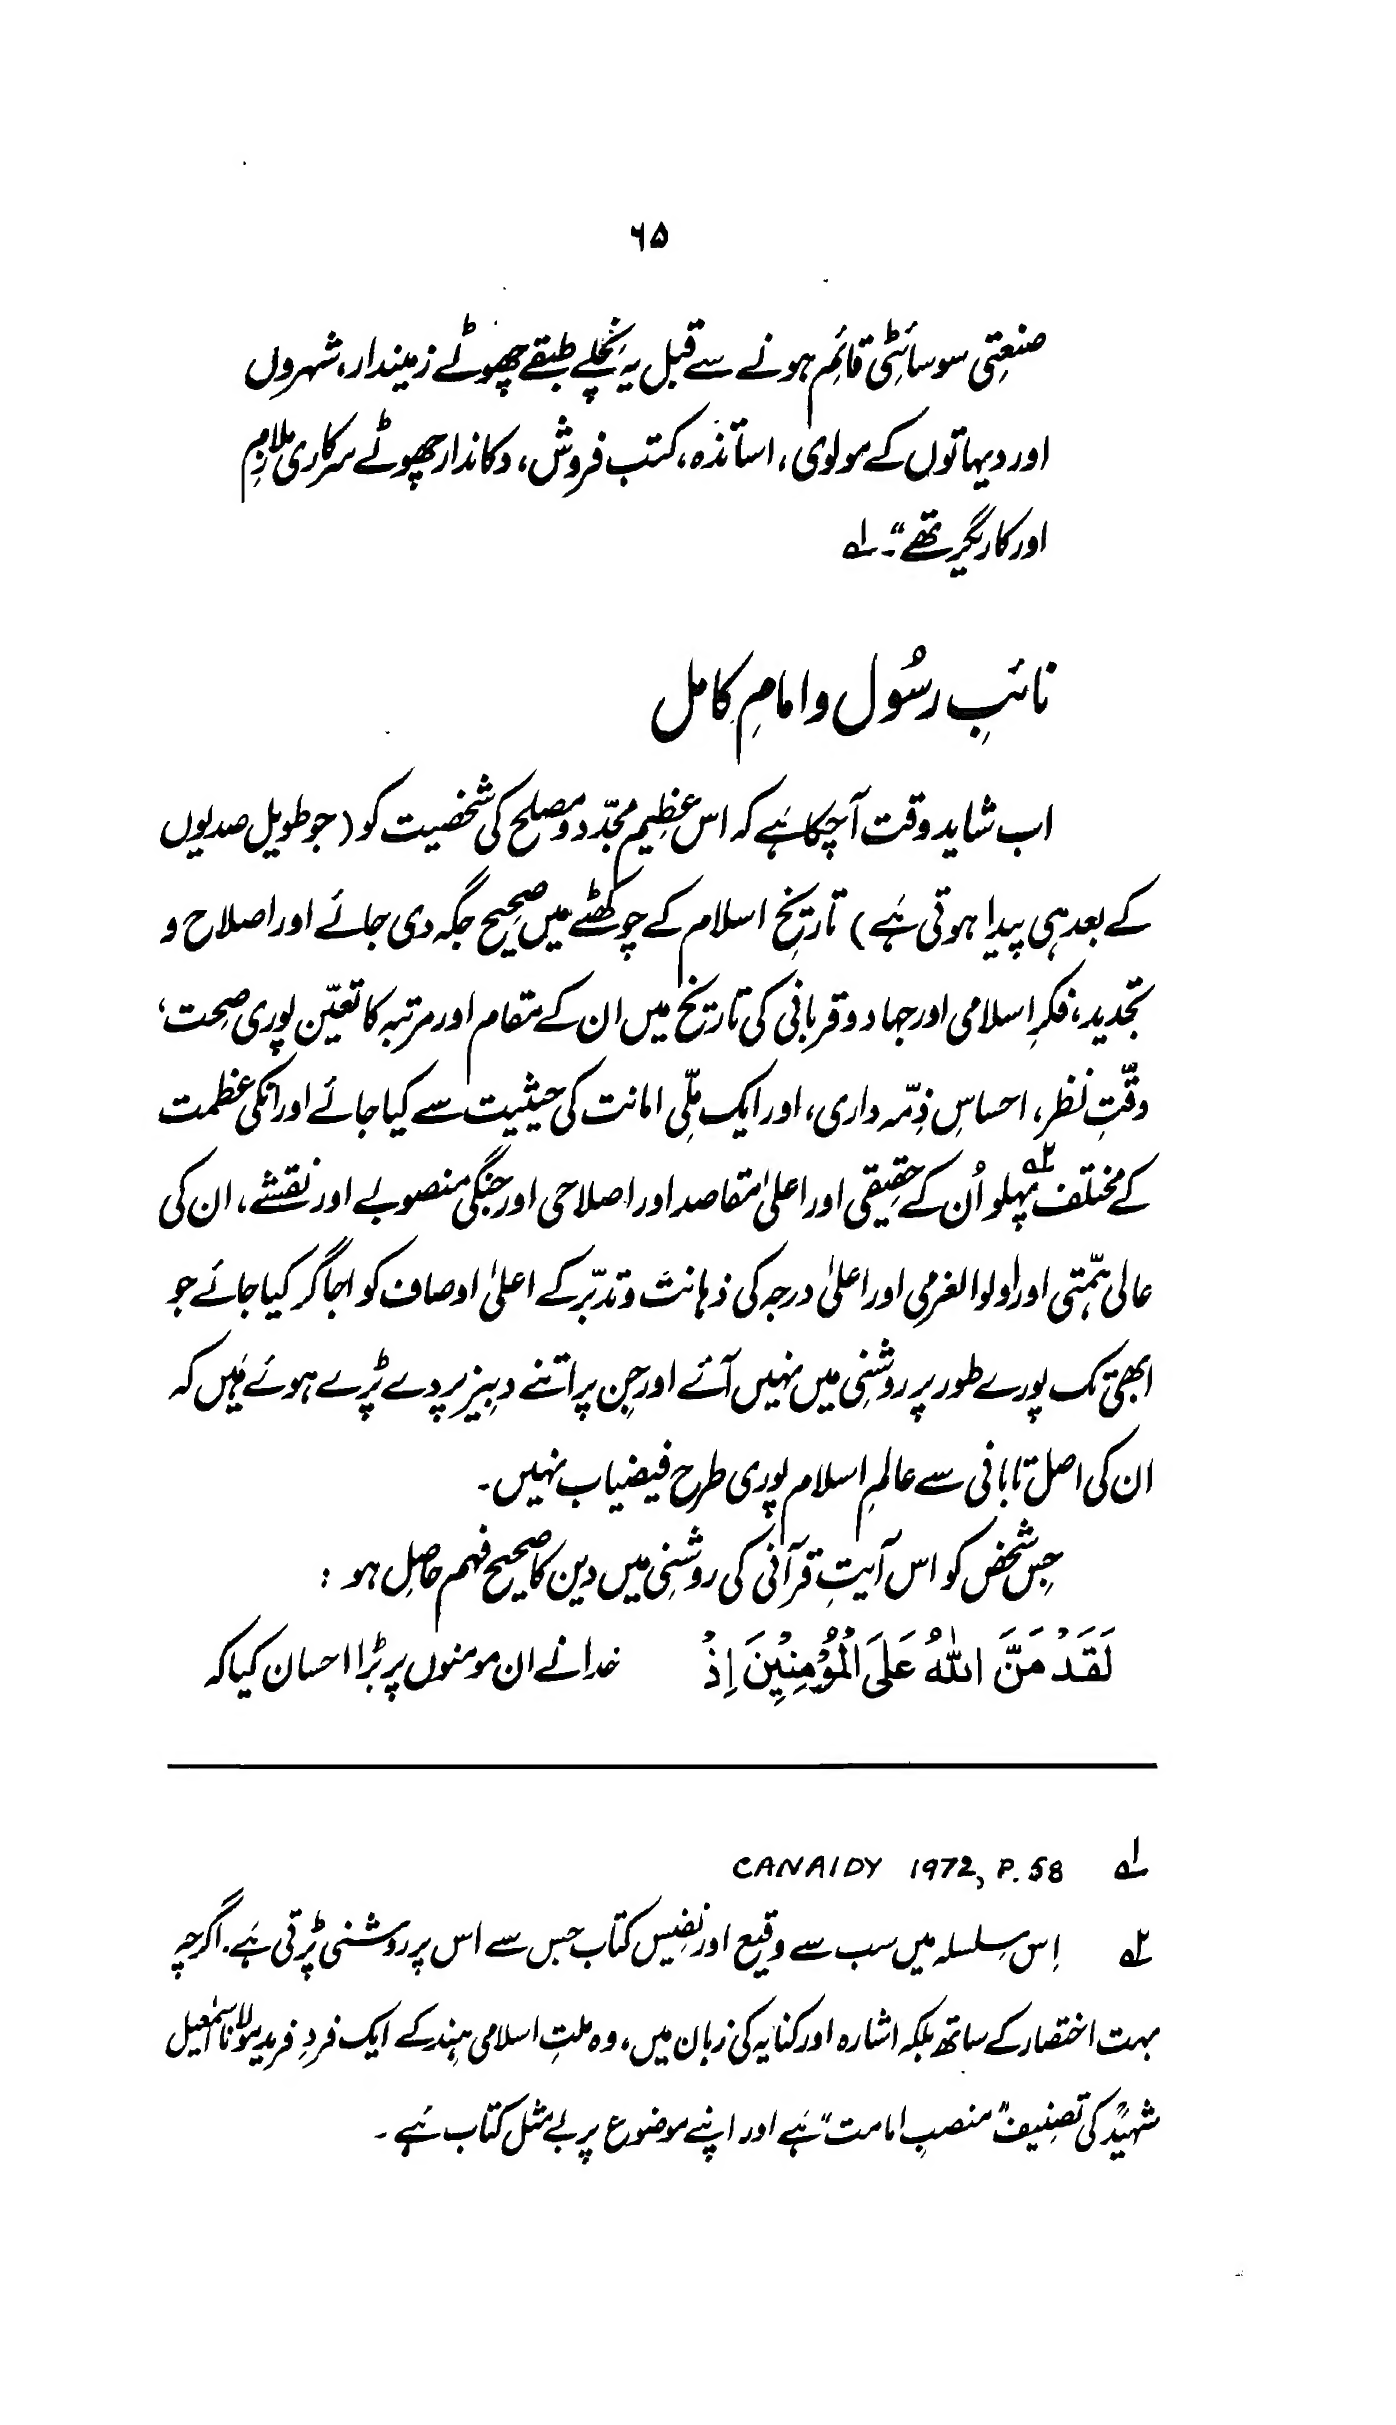 ۶۵
صنعتی سوسائٹی قائم ہونے سے قبل یہ نچلے طبقے چھوٹے زمیندار، شہروں
اور دیہاتوں کے مولوی، اساتذہ، کتب فروش، دکاندار چھوٹے سرکاری ملازم
اور کاریگر تھے“۔ ۱؎
نائبِ رسُول و امامِ کامل
اب شاید وقت آچکا ہے کہ اس عظیم مجدّد و مصلح کی شخصیت کو (جو طویل صدیوں
کے بعد ہی پیدا ہوتی ہے) تاریخِ اسلام کے چوکھٹے میں صحیح جگہ دی جائے اور اصلاح و
تجدید، فکرِ اسلامی اور جہاد و قربانی کی تاریخ میں ان کے مقام اور مرتبہ کا تعیّن پوری صحت،
دقّتِ نظر، احساسِ ذمّہ داری، اور ایک ملّی امانت کی حیثیت سے کیا جائے اور انکی عظمت
کے مختلف ۲؎ پہلو اُن کے حقیقی اور اعلیٰ مقاصد اور اصلاحی اور جنگی منصوبے اور نقشے، ان کی
عالی ہمّتی اور اولوالعزمی اور اعلیٰ درجہ کی ذہانت و تدبّر کے اعلیٰ اوصاف کو اجاگر کیا جائے جو
ابھی تک پورے طور پر روشنی میں نہیں آئے اور جن پر اتنے دبیز پردے پڑے ہوئے ہیں کہ
ان کی اصل تابانی سے عالمِ اسلام پوری طرح فیضیاب نہیں۔
جس شخص کو اس آیتِ قرآنی کی روشنی میں دین کا صحیح فہم حاصل ہو :
لَقَدْ مَنَّ اللّٰهُ عَلَى الْمُؤْمِنِيْنَ اِذْ خدا نے ان مومنوں پر بڑا احسان کیا کہ
۱؎ CANAIDY 1972, P. 58
۲؎ اِس سلسلہ میں سب سے وقیع اور نفیس کتاب جس سے اس پر روشنی پڑتی ہے۔ اگرچہ
بہت اختصار کے ساتھ بلکہ اشارہ اور کنایہ کی زبان میں، وہ ملتِ اسلامی ہند کے ایک فردِ فرید مولانا اسمٰعیل
شہیدؒ کی تصنیف ”منصبِ امامت“ ہے اور اپنے موضوع پر بے مثل کتاب ہے۔